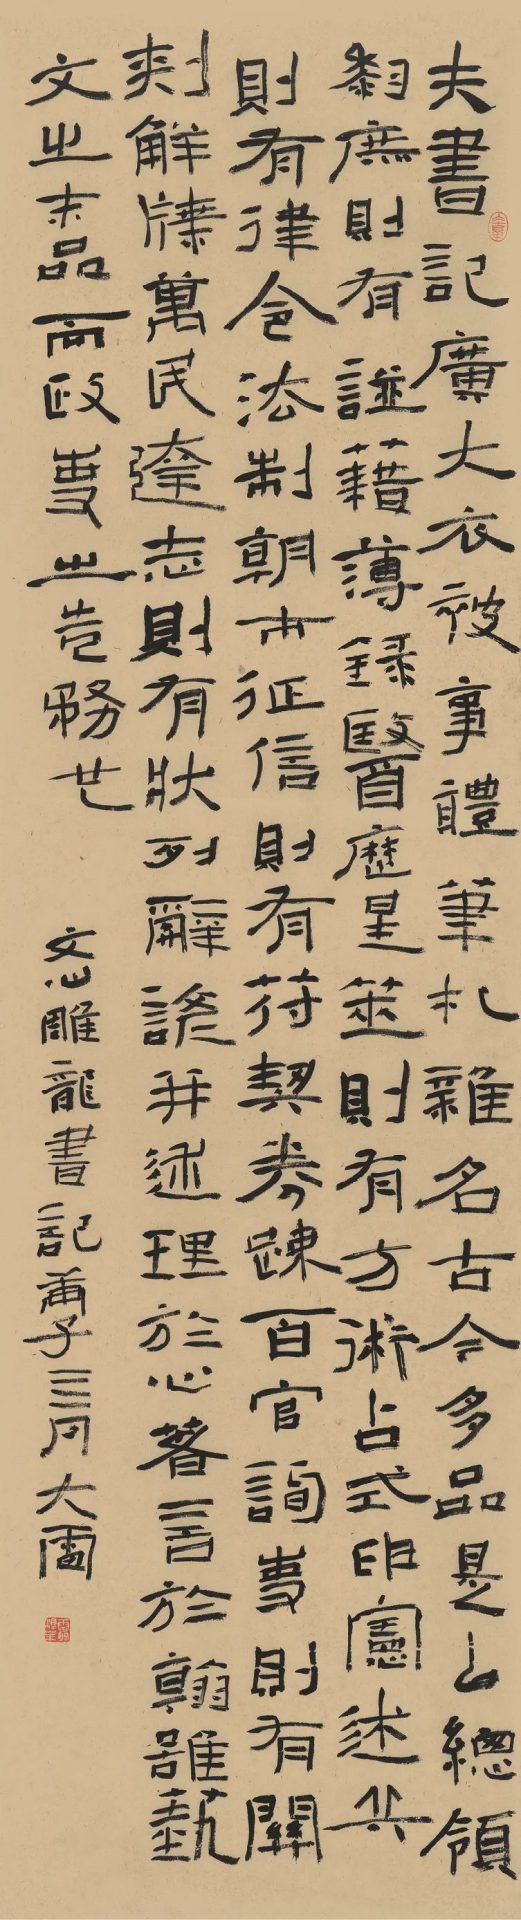 夫書記廣大衣被事體筆札雜名古今多品是以總領
黎庶則有譜籍薄録醫百歷星筮則有方術占式申憲述兵
則有律令法制朝市征信則有符契券疎百官詢事則有關
刺解牒萬民達志則有狀列辭諺并述理於心著言於翰雖藝
文之末品而政事之先務也
文心雕龍書記庚子三月大